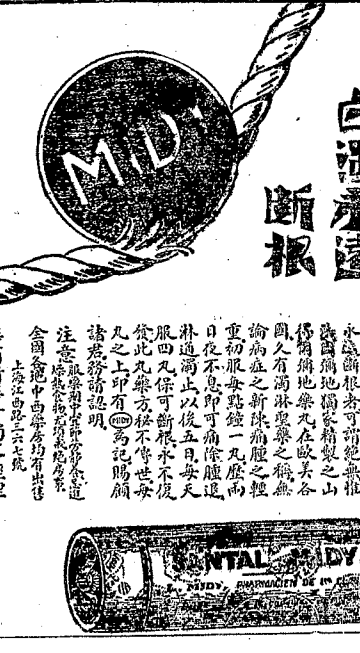 MiDY
白濁
斷根
永遠斷根者可謂絕無惟
獨家精製之山
得爾彌地藥丸在歐美各
國久有濁淋聖藥之稱無
論病症之新陳痛腫之輕
重初服每點鐘一丸歷兩
日夜不息即可痛除腫退
淋道濁止以後五日每天
服四丸保可斷根永不復
發此丸藥方秘不售世每
丸之上印有MIDY為記賜顧
諸君務請認明
注意
全國各地中西藥房均有出售
上海江西路三六七號
SANTAL MIDY
MIDY, PHARMACIEN DE 1re